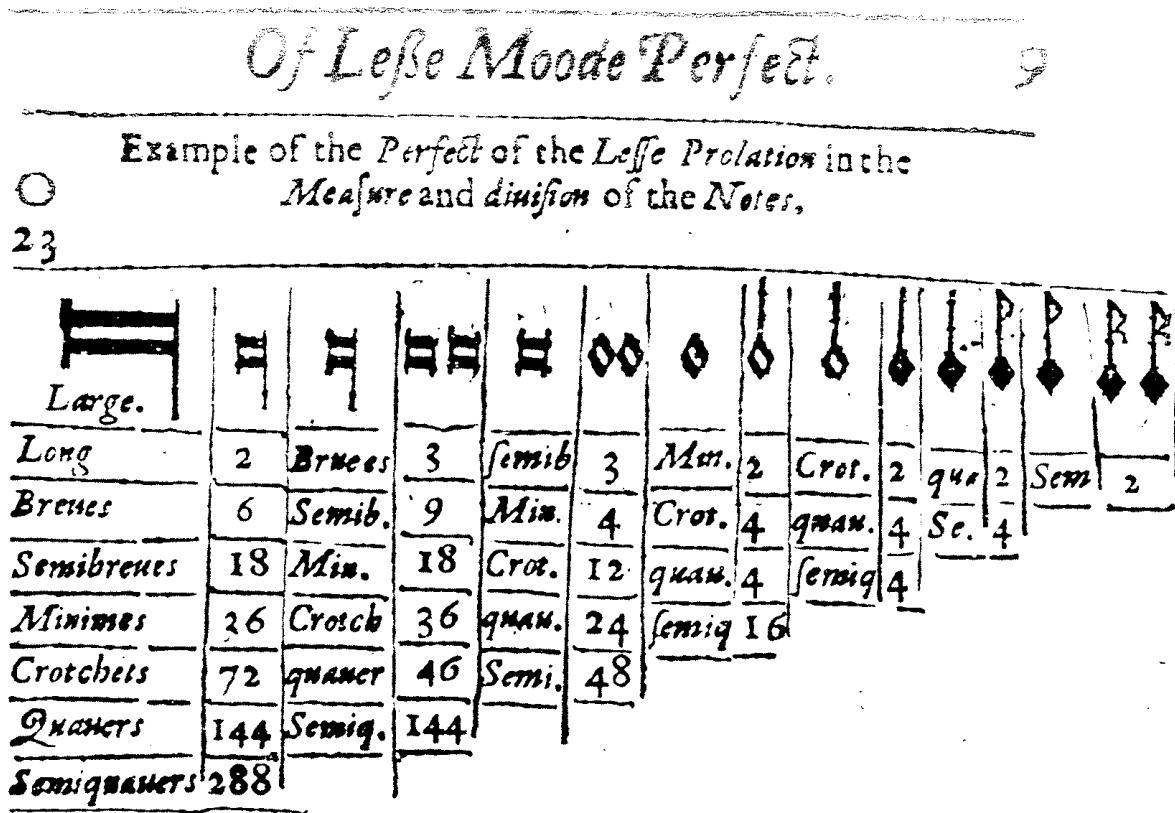 Of Leſſe Moode Perfect. 9
Example of the Perfect of the Leſſe Prolation in the
Meaſure and diuiſion of the Notes,
O
23
Large.
Long 2 Breues 3 ſemib 3 Min. 2 Crot. 2 qua 2 Sem 2
Breues 6 Semib. 9 Min. 4 Crot. 4 quau. 4 Se. 4
Semibreues 18 Min. 18 Crot. 12 quau. 4 ſemiq 4
Minimes 26 Crotch 36 quau. 24 ſemiq 16
Crotchets 72 quauer 46 Semi. 48
Quauers 144 Semiq. 144
Semiquauers 288